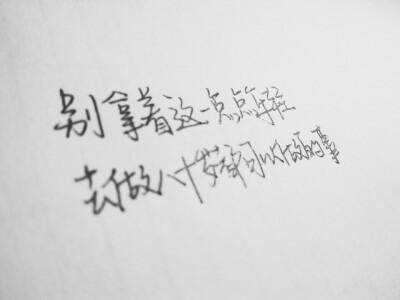 别拿着这一点点年轻
去做八十岁都可以做的事